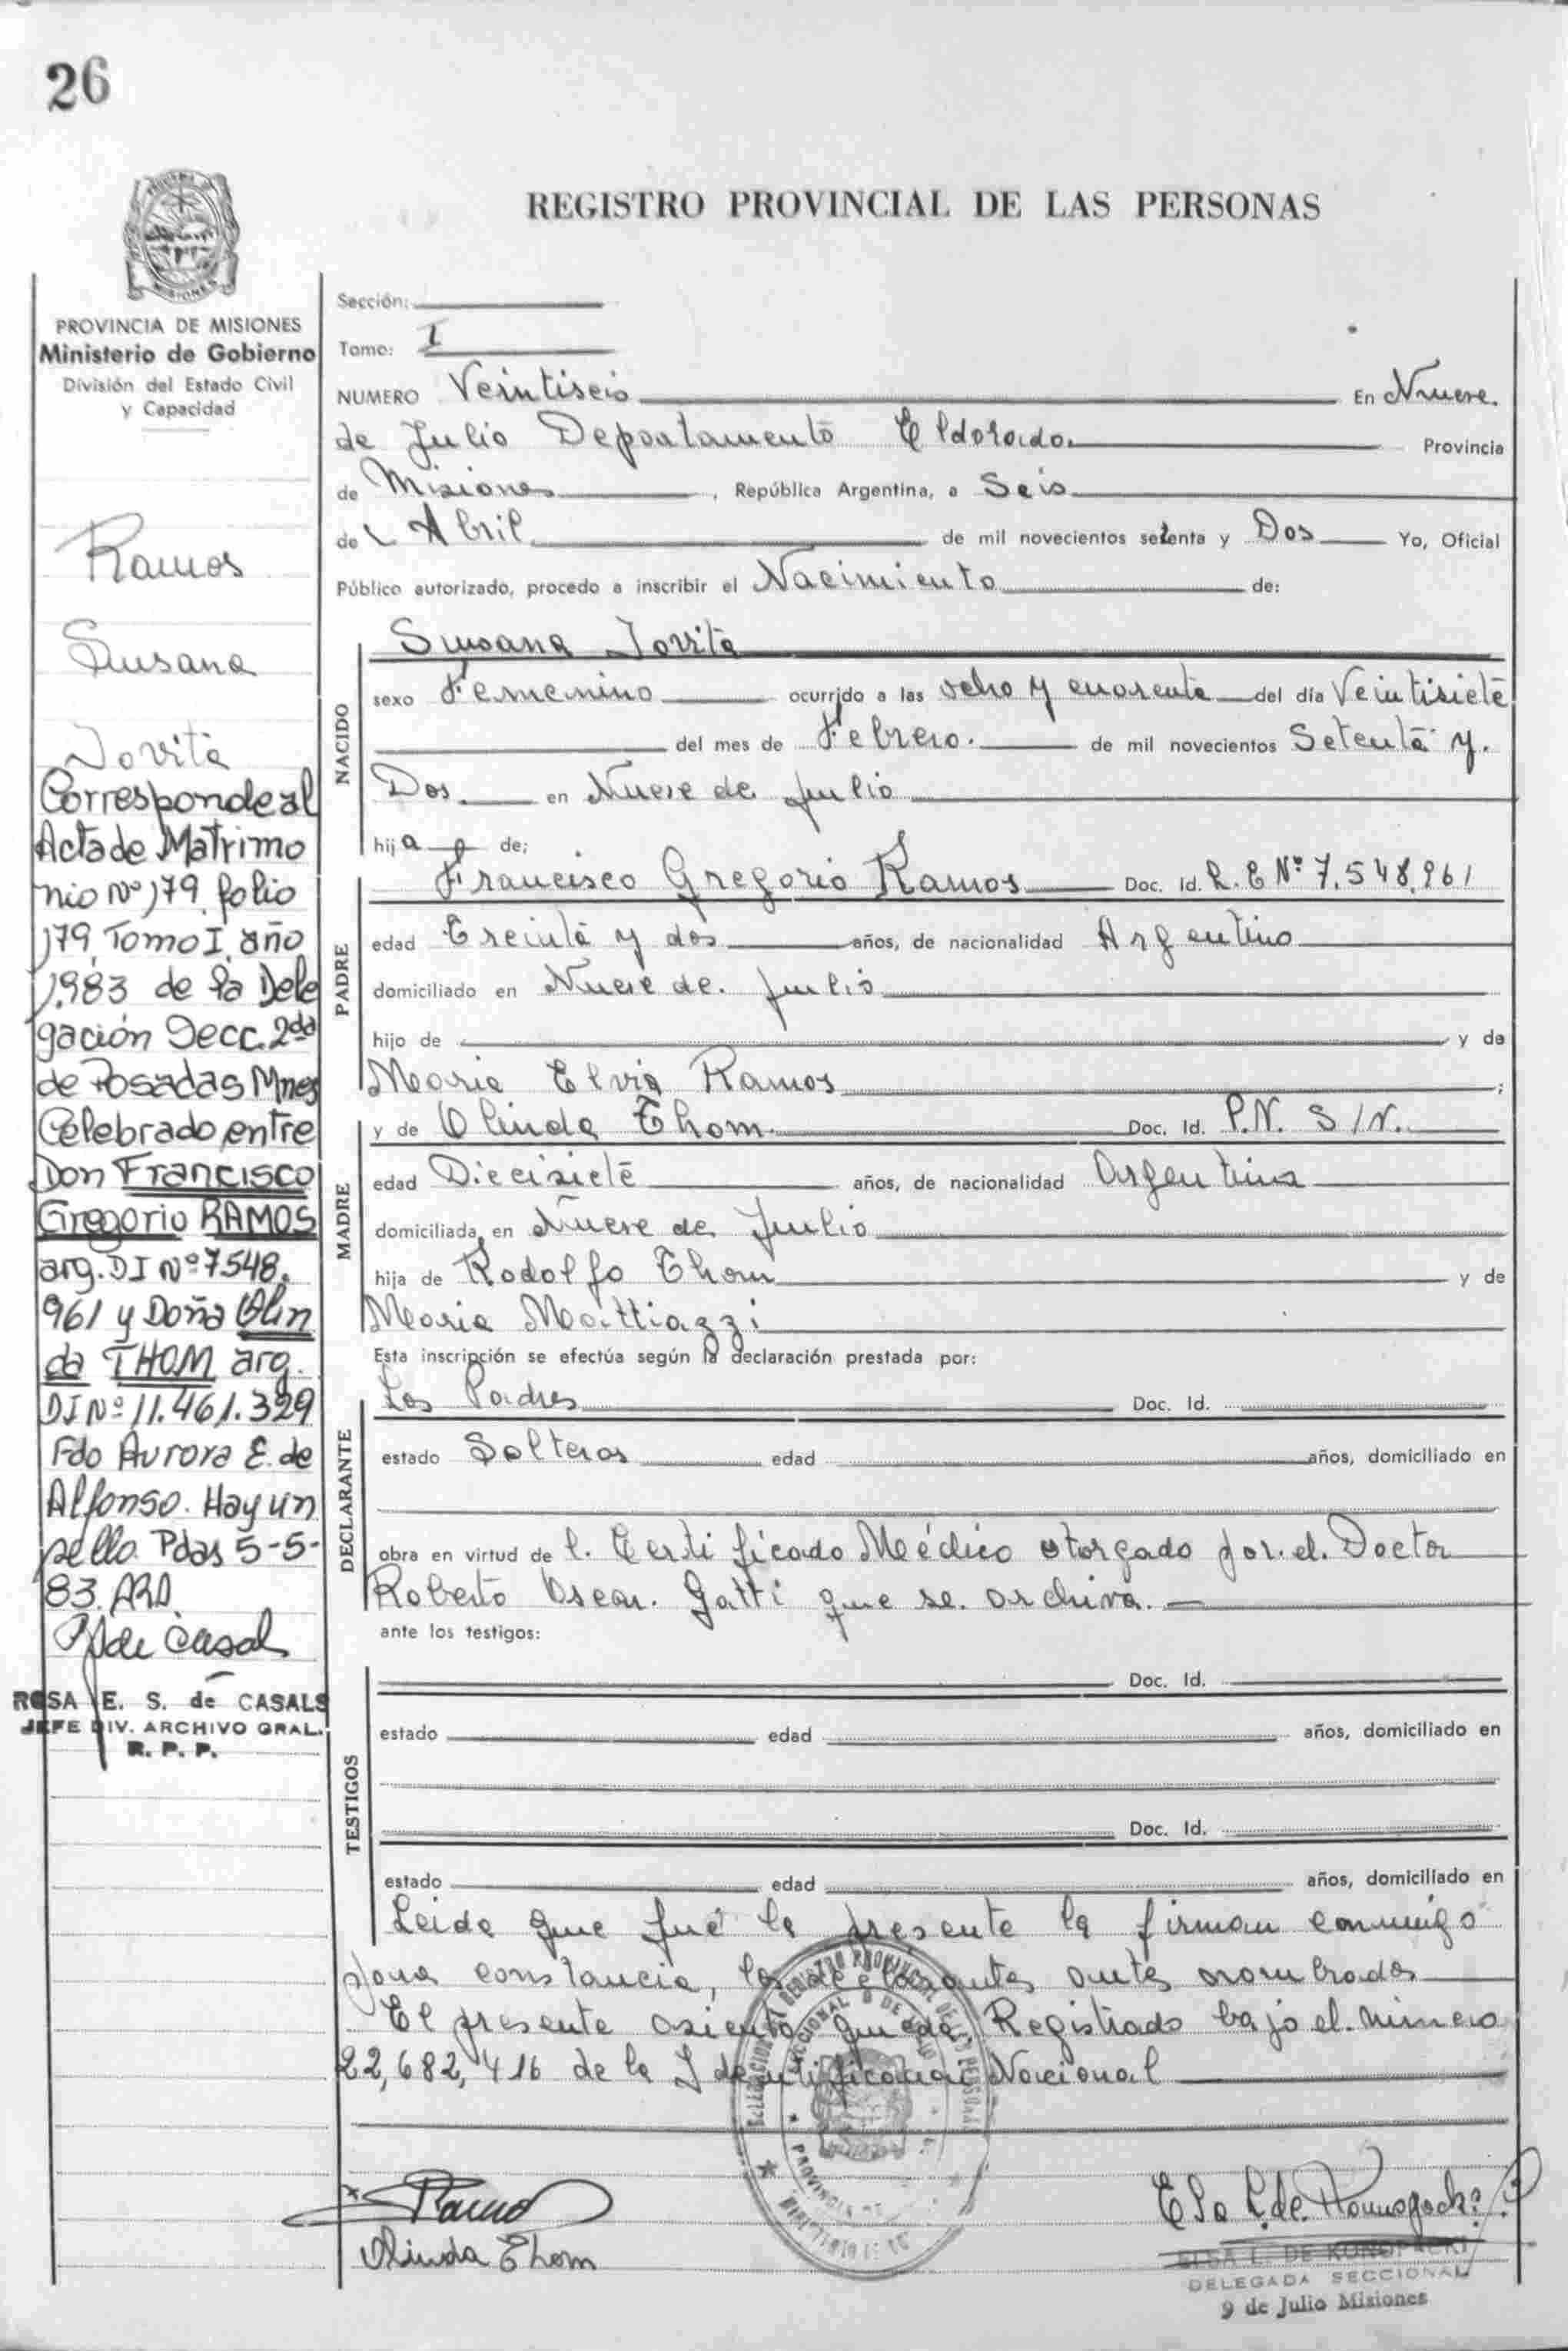 26
REGISTRO PROVINCIAL DE LAS PERSONAS
MISIONES
PROVINCIA DE MISIONES
Ministerio de Gobierno
División del Estado Civil
y Capacidad
Ramos
Susana
Jovita
Corresponde al
Acta de Matrimo
nio Nº 179 folio
179, Tomo I, año
1.983 de la Dele
gación Secc. 2da
de Posadas Mnes
Celebrado entre
Don Francisco
Gregorio RAMOS
arg. DI Nº 7.548.
961 y Doña Olin
da THOM arg.
DI Nº 11.461.329
Fdo Aurora E. de
Alfonso. Hay un
sello. Pdas 5-5-
83.
de Casals
ROSA E. S. de CASALS
JEFE DIV. ARCHIVO GRAL.
R. P. P.
Sección:
Tomo: I
NUMERO Veintiseis En Nueve.
de Julio Departamento Eldorado. Provincia
de Misiones, República Argentina, a Seis
de Abril de mil novecientos setenta y Dos Yo, Oficial
Público autorizado, procedo a inscribir el Nacimiento de:
NACIDO
Susana Jovita
sexo Femenino ocurrido a las ocho y cuarenta del día Veintisiete
del mes de Febrero. de mil novecientos Setenta y.
Dos en Nueve de Julio
hija de;
PADRE
Francisco Gregorio Ramos Doc. Id. L.E Nº 7.548.961
edad Treinta y dos años, de nacionalidad Argentino
domiciliado en Nueve de. Julio
hijo de y de
Maria Elvia Ramos;
MADRE
y de Olinda Thom. Doc. Id. P.N. S/N.
edad Diecisiete años, de nacionalidad Argentina
domiciliada en Nueve de Julio
hija de Rodolfo Thom y de
Maria Mattiazzi
Esta inscripción se efectúa según la declaración prestada por:
DECLARANTE
Los Padres Doc. Id.
estado Solteros edad años, domiciliado en
obra en virtud de l. Certificado Médico otorgado por. el. Doctor
Roberto Oscar. Gatti que se. archiva.
ante los testigos:
TESTIGOS
Doc. Id.
estado edad años, domiciliado en
Doc. Id.
estado edad años, domiciliado en
Leida que fué la presente la firman conmigo
para constancia, los declarantes antes nombrados
El presente asiento queda Registrado bajo el. número
22,682,416 de la Identificación Nacional
Ramos
Olinda Thom
Elsa L. de Konopacki
ELSA L. DE KONOPACKI
DELEGADA SECCIONAL
9 de Julio Misiones